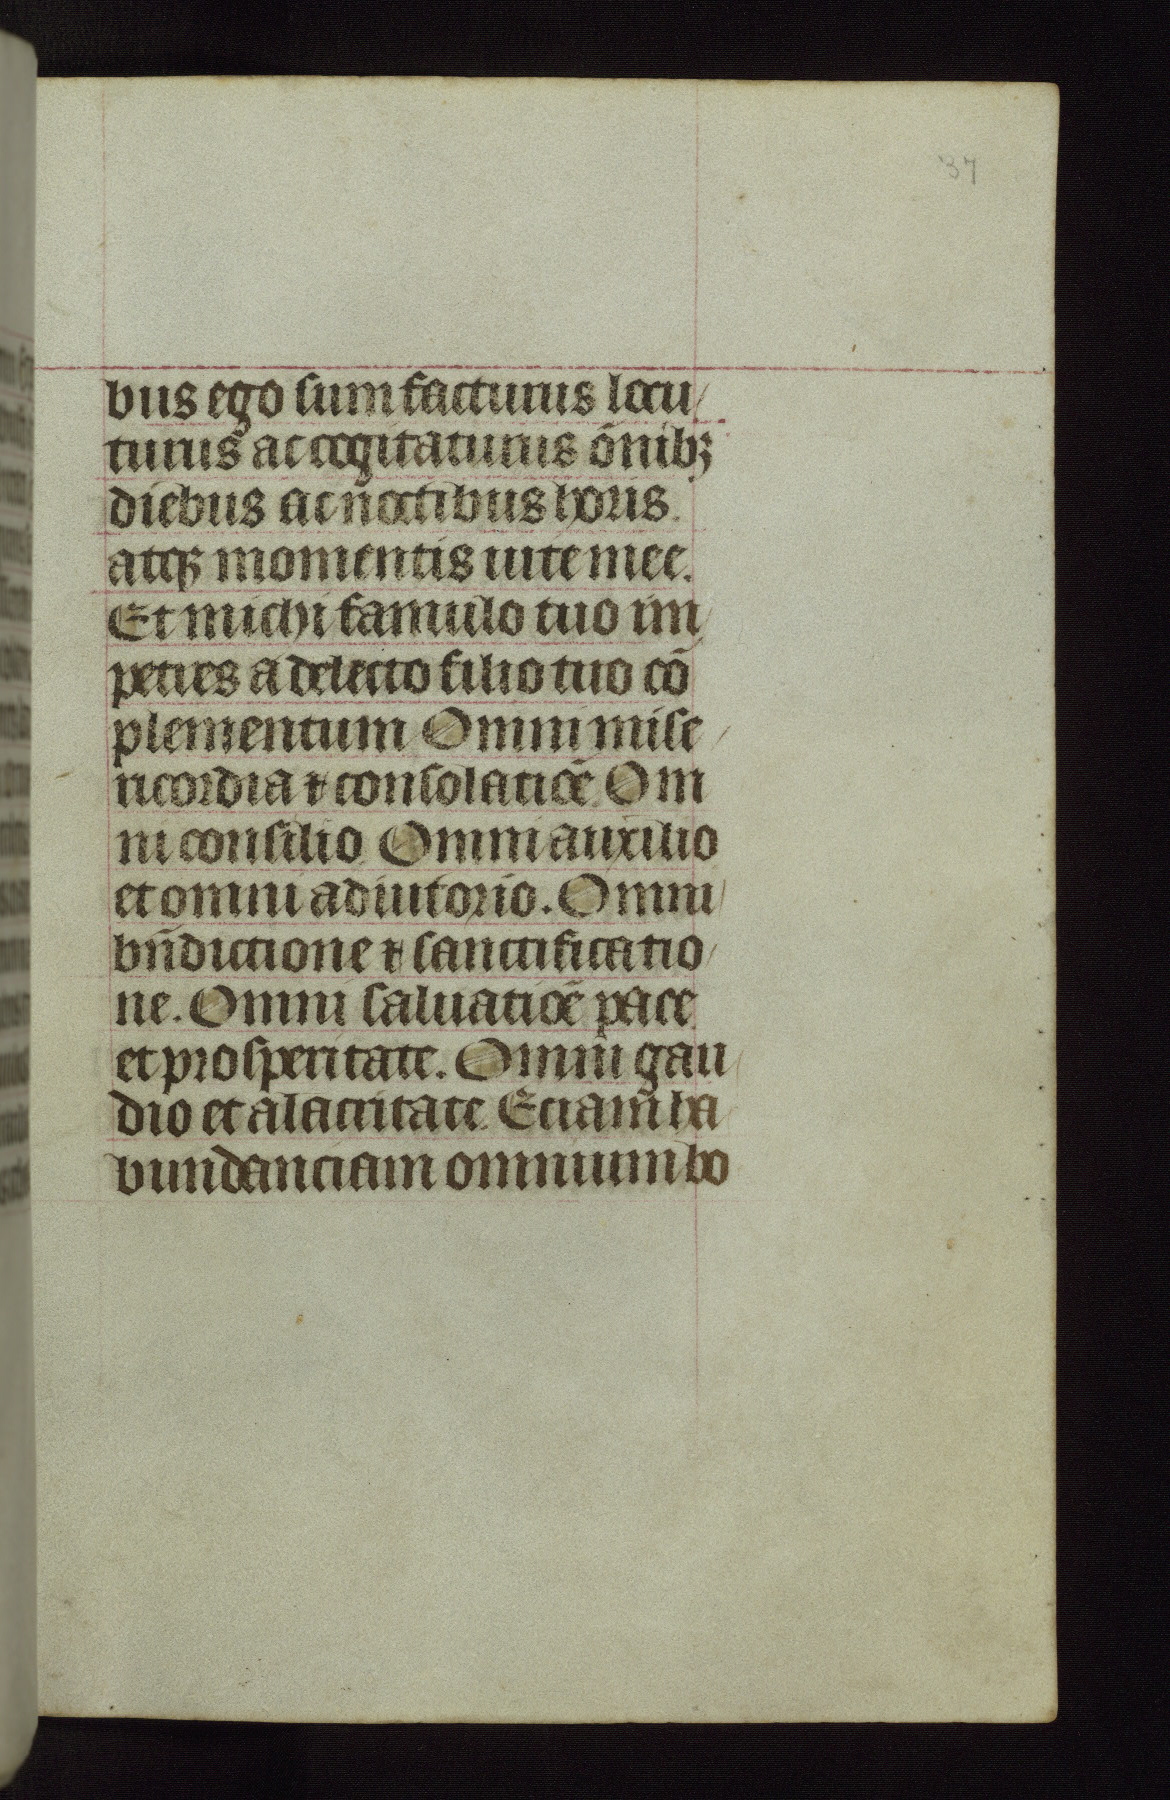 37
bus ego sum facturus locu
turus ac cogitaturus õnibꝫ
diebus ac noctibus horis
atqꝫ momentis uite mee.
Et michi famulo tuo im
petres a delecto filio tuo cõ
plementum Omni mise
ricordia ⁊ consolatiõe Om
ni consilio Omni auxilio
et omni adiutorio. Omni
bñdictione ⁊ sanctificatio
ne. Omni saluatiõe pace
et prosperitate. Omni gau
dio et alacritate Etiam ha
bundanciam omnium bo